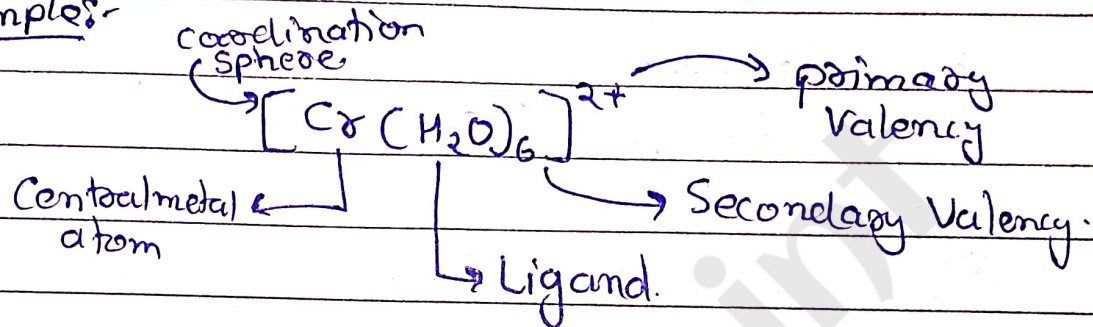 mple:-
coordination
sphere
[Cr(H₂O)₆]²⁺
primary
Valency
Central metal
atom
Secondary Valency.
Ligand.